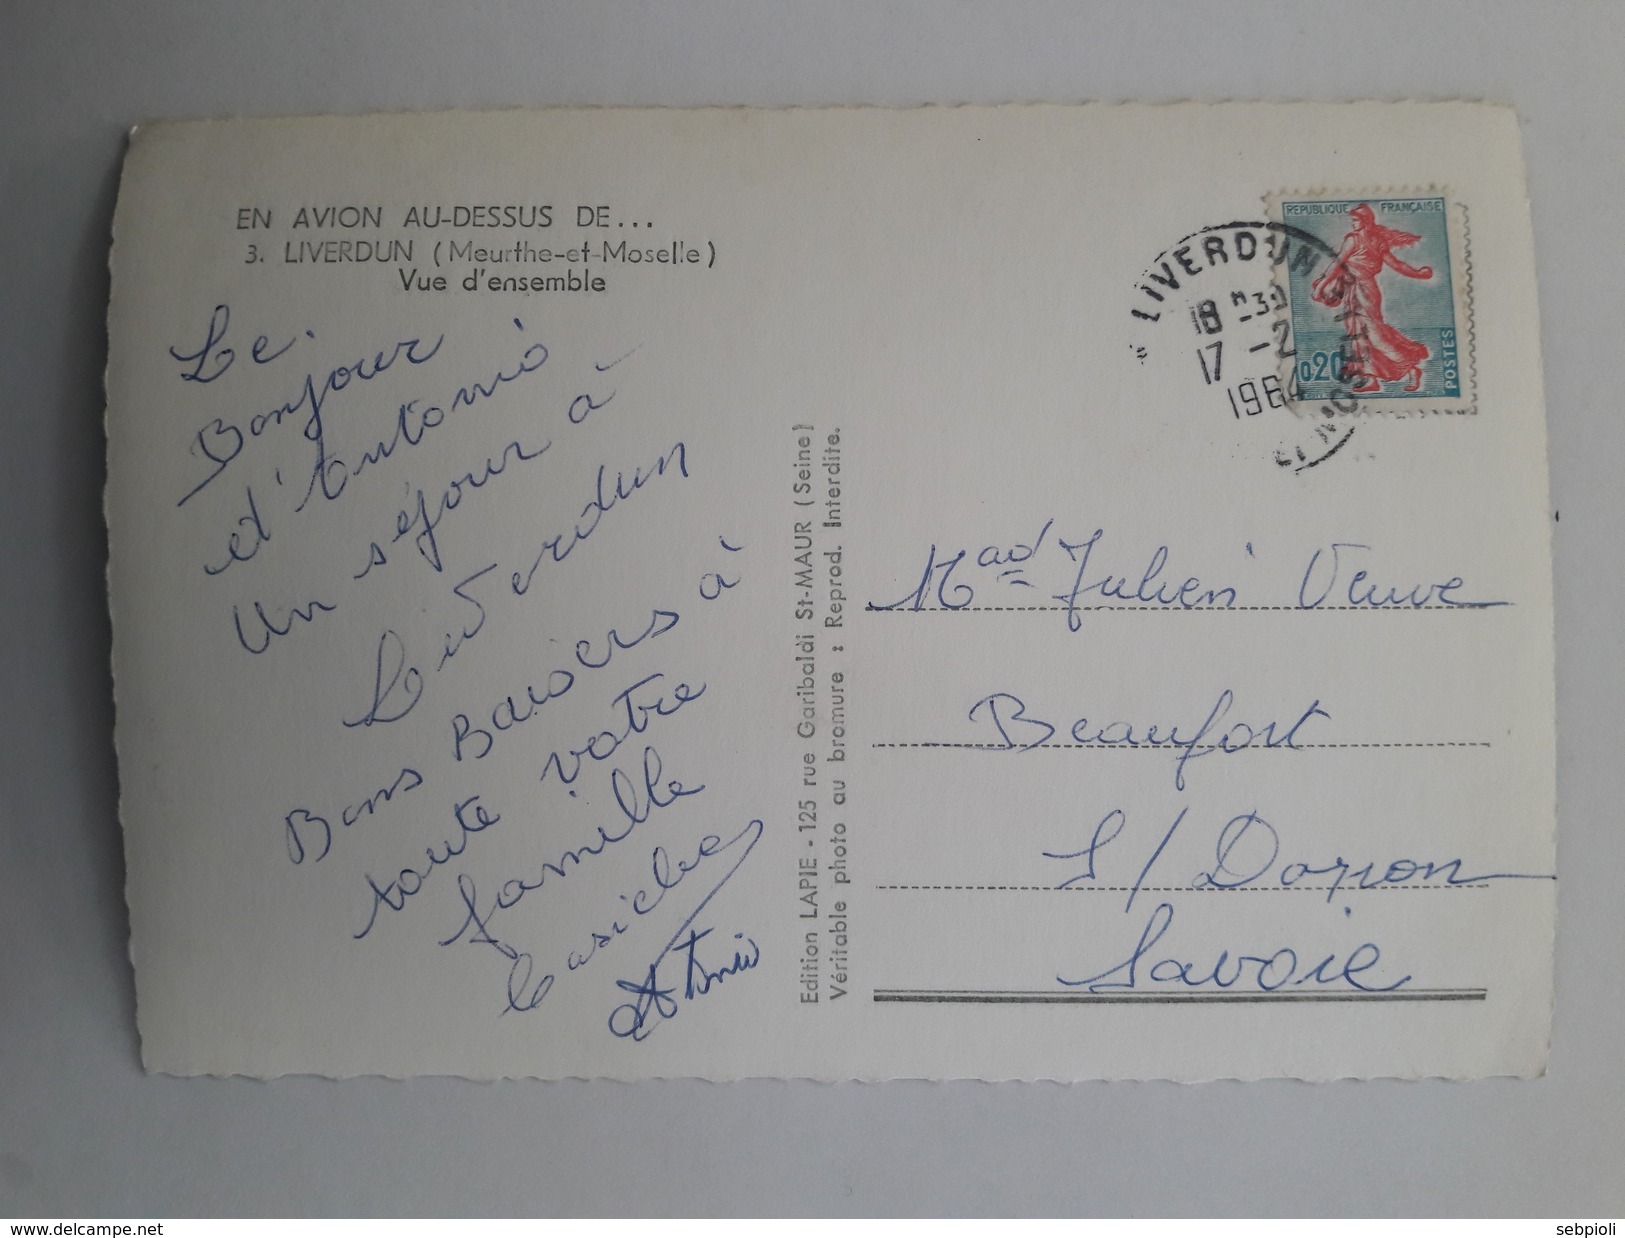 EN AVION AU-DESSUS DE...
3. LIVERDUN (Meurthe-et-Moselle)
Vue d'ensemble
Le.
Bonjour
d'Antonio
Un séjour à
Liverdun
Bons Baisers à
toute votre
famille
Antonio
Edition LAPIE - 125 rue Garibaldi St-MAUR (Seine)
Véritable photo au bromure : Reprod. Interdite.
LIVERDUN
18 H30
17 -2
1964
ET MOSELLE
REPUBLIQUE FRANÇAISE
0,20
POSTES
Mad Julien Veuve
Beaufort
S/ Doron
Savoie
www.delcampe.net
sebpioli